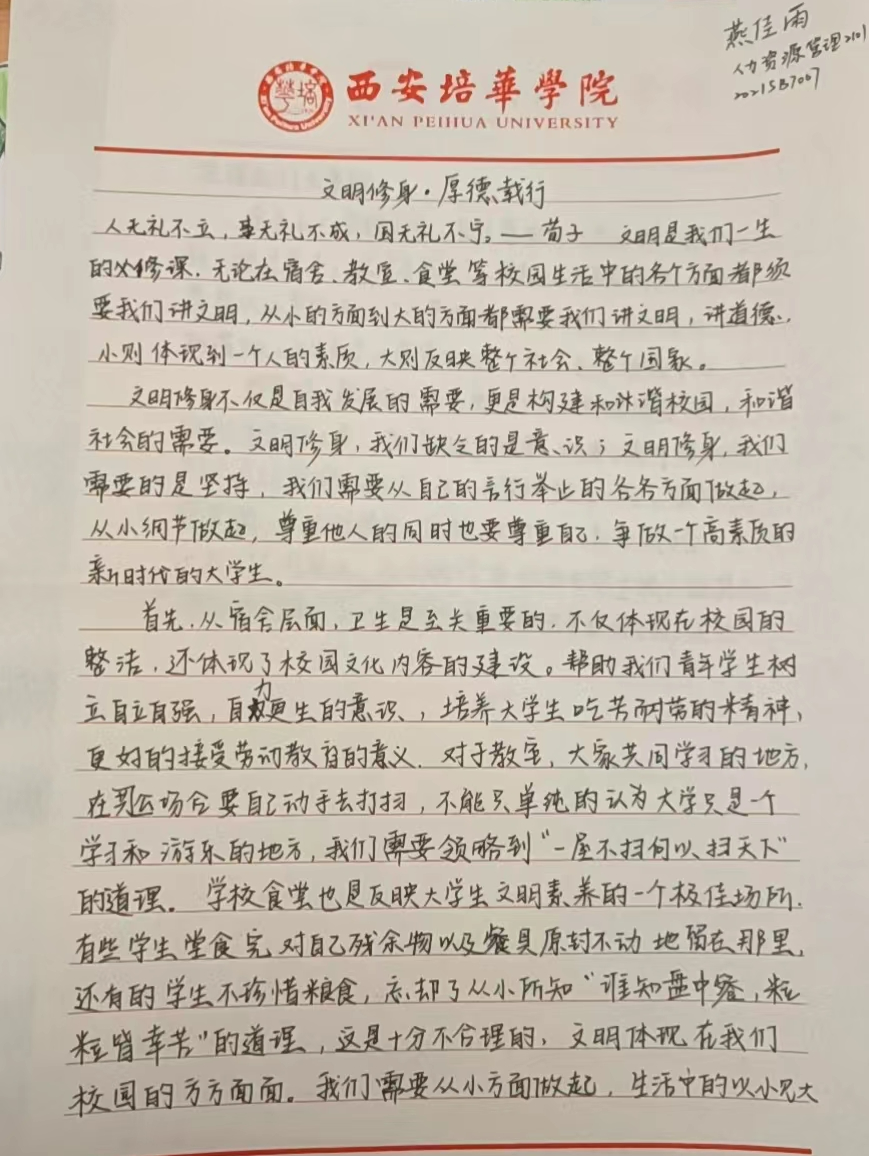 燕佳雨
人力资源管理2101
2021SB7007
西安培華學院
XI'AN PEIHUA UNIVERSITY
文明修身·厚德载行
人无礼不立，事无礼不成，国无礼不宁。— 荀子 文明是我们一生
的必修课，无论在宿舍、教室、食堂等校园生活中的各个方面都须
要我们讲文明，从小的方面到大的方面都需要我们讲文明，讲道德，
小则体现到一个人的素质，大则反映整个社会、整个国家。
文明修身不仅是自我发展的需要，更是构建和谐校园，和谐
社会的需要。文明修身，我们缺乏的是意识；文明修身，我们
需要的是坚持，我们需要从自己的言行举止的各各方面做起，
从小细节做起，尊重他人的同时也要尊重自己，争做一个高素质的
新时代的大学生。
首先，从宿舍层面，卫生是至关重要的，不仅体现在校园的
整洁，还体现了校园文化内容的建设。帮助我们青年学生树
立自立自强，自力更生的意识，培养大学生吃苦耐劳的精神，
更好的接受劳动教育的意义。对于教室，大家共同学习的地方，
在公场合要自己动手去打扫，不能只单纯的认为大学只是一个
学习和游乐的地方，我们需要领略到“一屋不扫何以扫天下”
的道理。学校食堂也是反映大学生文明素养的一个极佳场所，
有些学生堂食完对自己残余物以及餐具原封不动地留在那里，
还有的学生不珍惜粮食，忘却了从小所知“谁知盘中餐，粒
粒皆幸苦”的道理，这是十分不合理的，文明体现在我们
校园的方方面面。我们需要从小方面做起，生活中的以小见大